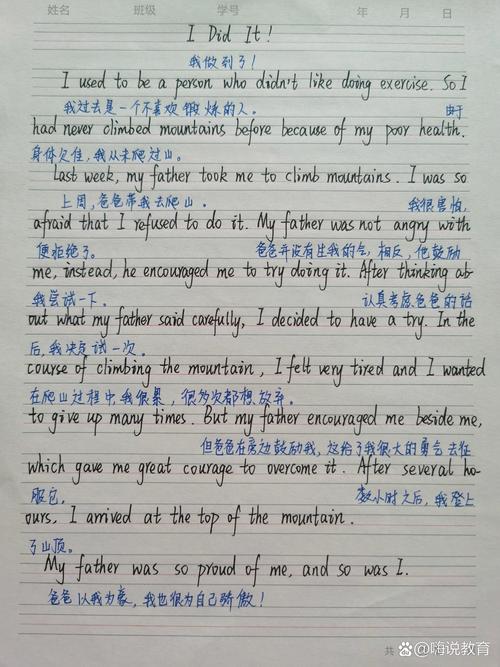 姓名 班级 学号 年 月 日
I Did It!
我做到了!
I used to be a person who didn't like doing exercise. So I
我过去是一个不喜欢锻炼的人。 由于
had never climbed mountains before because of my poor health.
身体欠佳,我从未爬过山。
Last week, my father took me to climb mountains. I was so
上周,爸爸带我去爬山。 我很害怕,
afraid that I refused to do it. My father was not angry with
便拒绝了。 爸爸并没有生我的气,相反,他鼓励
me, instead, he encouraged me to try doing it. After thinking ab-
我尝试一下。 认真考虑爸爸的话
out what my father said carefully, I decided to have a try. In the
后,我决定试一次。
course of climbing the mountain, I felt very tired and I wanted
在爬山过程中,我很累,很多次都想放弃。
to give up many times. But my father encouraged me beside me,
但爸爸在旁边鼓励我,这给了我很大的勇气去征
which gave me great courage to overcome it. After several ho-
服它。 数小时之后,我登上
ours, I arrived at the top of the mountain.
了山顶。
My father was so proud of me, and so was I.
爸爸以我为豪,我也很为自己骄傲!
共
嗨说教育